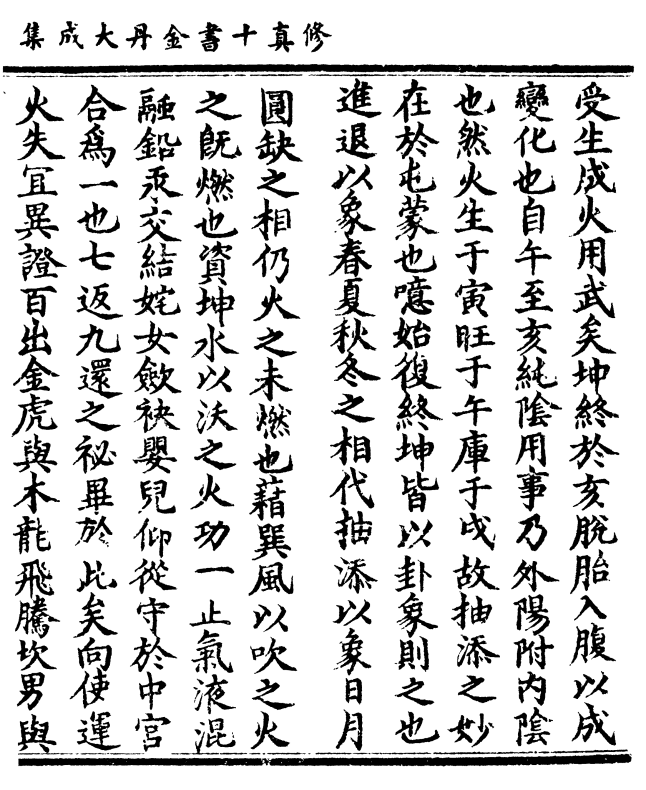 修真十書金丹大成集
受生成火用武矣坤終於亥脫胎入腹以成
變化也自午至亥純陰用事乃外陽附內陰
也然火生于寅旺于午庫于戌故抽添之妙
在於屯蒙也噫始復終坤皆以卦象則之也
進退以象春夏秋冬之相代抽添以象日月
圓缺之相仍火之未燃也藉巽風以吹之火
之既燃也資坤水以沃之火功一止氣液混
融鉛汞交結姹女歛袂嬰兒仰從守於中宮
合爲一也七返九還之祕畢於此矣向使運
火失宜異證百出金虎與木龍飛騰坎男與